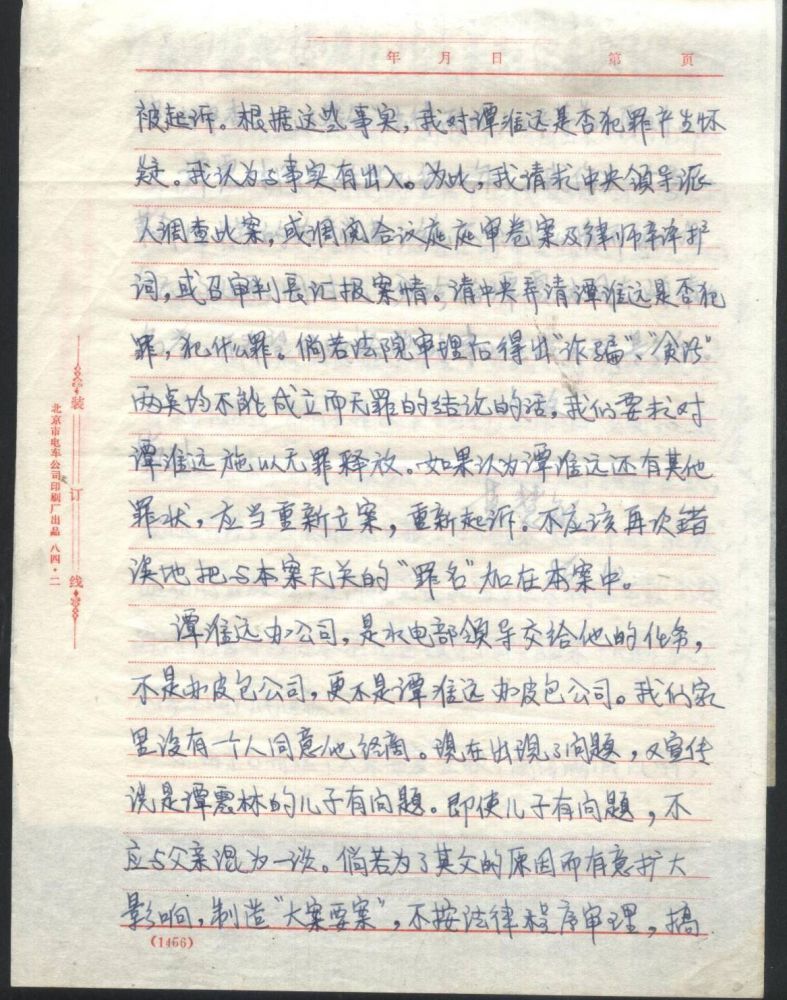 年 月 日 第 页
被起诉。根据这些事实，我对谭淮远是否犯罪产生怀
疑。我认为与事实有出入。为此，我请求中央领导派
人调查此案，或调阅合议庭庭审卷案及律师辛泽护
词，或召审判长汇报案情。请中央弄清谭淮远是否犯
罪，犯什么罪。倘若法院审理后得出“诈骗”、“贪污”
两案均不能成立而无罪的结论的话，我们要求对
谭淮远施以无罪释放。如果认为谭淮远还有其他
罪状，应当重新立案，重新起诉。不应该再次错
误地把与本案无关的“罪名”加在本案中。
谭淮远办公司，是水电部领导交给他的任务，
不是办皮包公司，更不是谭淮远办皮包公司。我们家
里没有一个人同意他经商。现在出现了问题，又宣传
说是谭惠林的儿子有问题。即使儿子有问题，不
应与父亲混为一谈。倘若为了其父的原因而有意扩大
影响，制造“大案要案”，不按法律程序审理，搞
(1466)
装订线
北京市电车公司印刷厂出品 八四·二